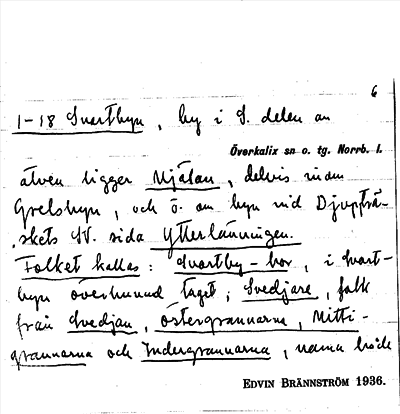 6
1-18 Svartbyn, by i S. delen av
Överkalix sn o. tg. Norrb. l.
älven ligger Mjätan, delvis inom
Grelsbyn, och ö. om byn vid Djupträ-
skets SV. sida Ytterlänningen.
Folket kallas: Svartby-bor, i Svart-
byn överhuvud taget; Svedjare, folk
från Svedjan, Östergrannarna, Mitti-
grannarna och Indergrannarna, namn både
EDVIN BRÄNNSTRÖM 1936.